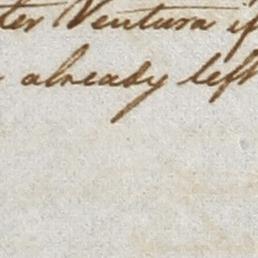 ter Ventura if
already left